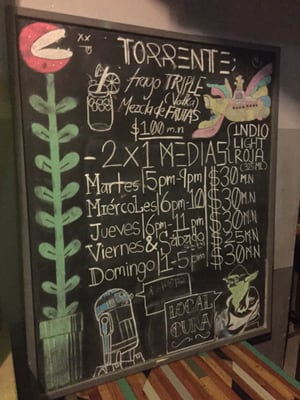 TORRENTE
trago TRIPLE
Vodka
Mezcla de FRUTAS
$100 m.n
- 2x1 MEDIAS
INDIO
LIGHT
ROJA
Martes 5pm-9pm $30 MN
Miércoles 6pm-10 $30 MN
Jueves 6pm-11pm $30 MN
Viernes & Sábado $25 MN
Domingo 1-5pm $30 MN
LOCAL